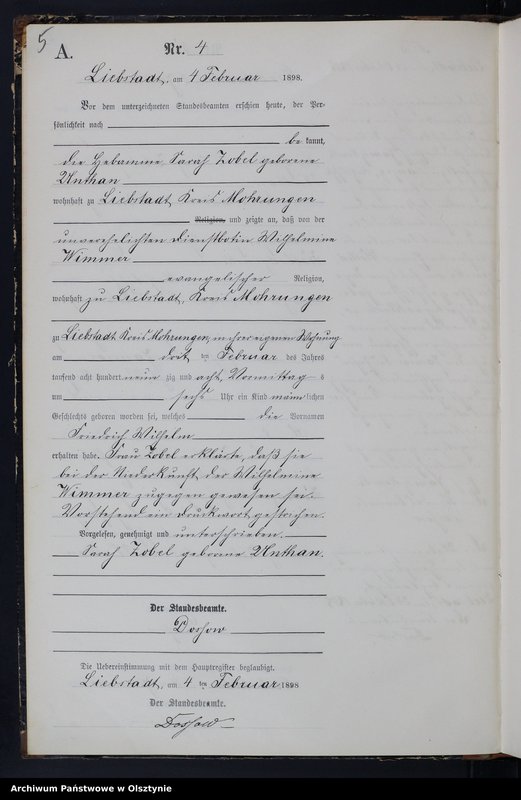 5
A.
Nr. 4
Liebstadt, am 4 Februar 1898.
Vor dem unterzeichneten Standesbeamten erschien heute, der Per-
sönlichkeit nach
be kannt,
die Hebamme Sarah Zobel geborene
Unthan
wohnhaft zu Liebstadt, Kreis Mohrungen
Religion, und zeigte an, daß von der
unverehelichten Dienstbotin Wilhelmine
Wimmer
evangelischer Religion,
wohnhaft zu Liebstadt, Kreis Mohrungen
zu Liebstadt Kreis Mohrungen, in ihrer eigenen Wohnung
am drei ten Februar des Jahres
tausend acht hundert neun zig und acht, Vormittag s
um sechs Uhr ein Kind männlichen
Geschlechts geboren worden sei, welches die Vornamen
Friedrich Wilhelm
erhalten habe. Frau Zobel erklärte, daß sie
bei der Niederkunft der Wilhelmine
Wimmer zugegen gewesen sei.
Vorstehend ein Druckwort gestrichen.
Vorgelesen, genehmigt und unterschrieben.
Sarah Zobel geborene Unthan.
Der Standesbeamte.
Dossow
Die Uebereinstimmung mit dem Hauptregister beglaubigt.
Liebstadt, am 4 ten Februar 1898
Der Standesbeamte.
Dossow
Archiwum Państwowe w Olsztynie